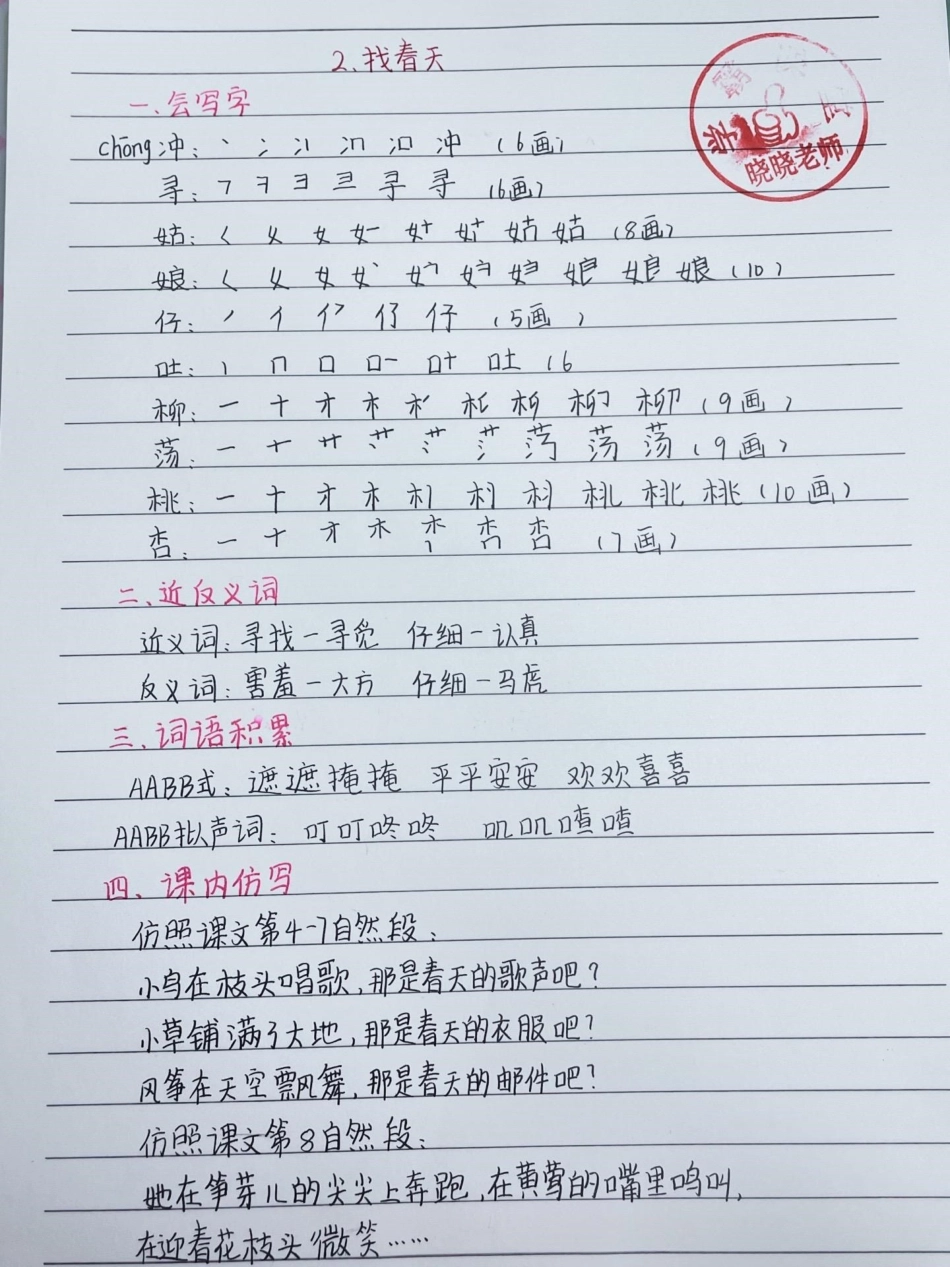 2、找春天
一、会写字
chōng冲：丶 冫 冫丨 冫冂 冫口 冲 (6画)
寻：㇕ ヨ 彐 寻 寻 (6画)
姑：𡿨 女 女 姑 姑 (8画)
娘：𡿨 女 女 娘 娘 娘 (10)
仔：丿 亻 仔 仔 (5画 )
吐：丨 冂 口 口一 口十 吐 (6
柳：一 十 才 木 柳 柳 (9画)
荡：一 十 艹 荡 荡 (9画)
桃：一 十 才 木 桃 桃 桃 (10画)
杏：一 十 才 木 杏 杏 (7画)
二、近反义词
近义词：寻找－寻觉 仔细－认真
反义词：害羞－大方 仔细－马虎
三、词语积累
AABB式：遮遮掩掩 平平安安 欢欢喜喜
AABB拟声词：叮叮咚咚 叽叽喳喳
四、课内仿写
仿照课文第4-7自然段：
小鸟在枝头唱歌，那是春天的歌声吧？
小草铺满了大地，那是春天的衣服吧？
风筝在天空飘舞，那是春天的邮件吧？
仿照课文第8自然段：
她在笋芽儿的尖尖上奔跑，在黄莺的嘴里鸣叫，
在迎春花枝头微笑……
晓晓老师